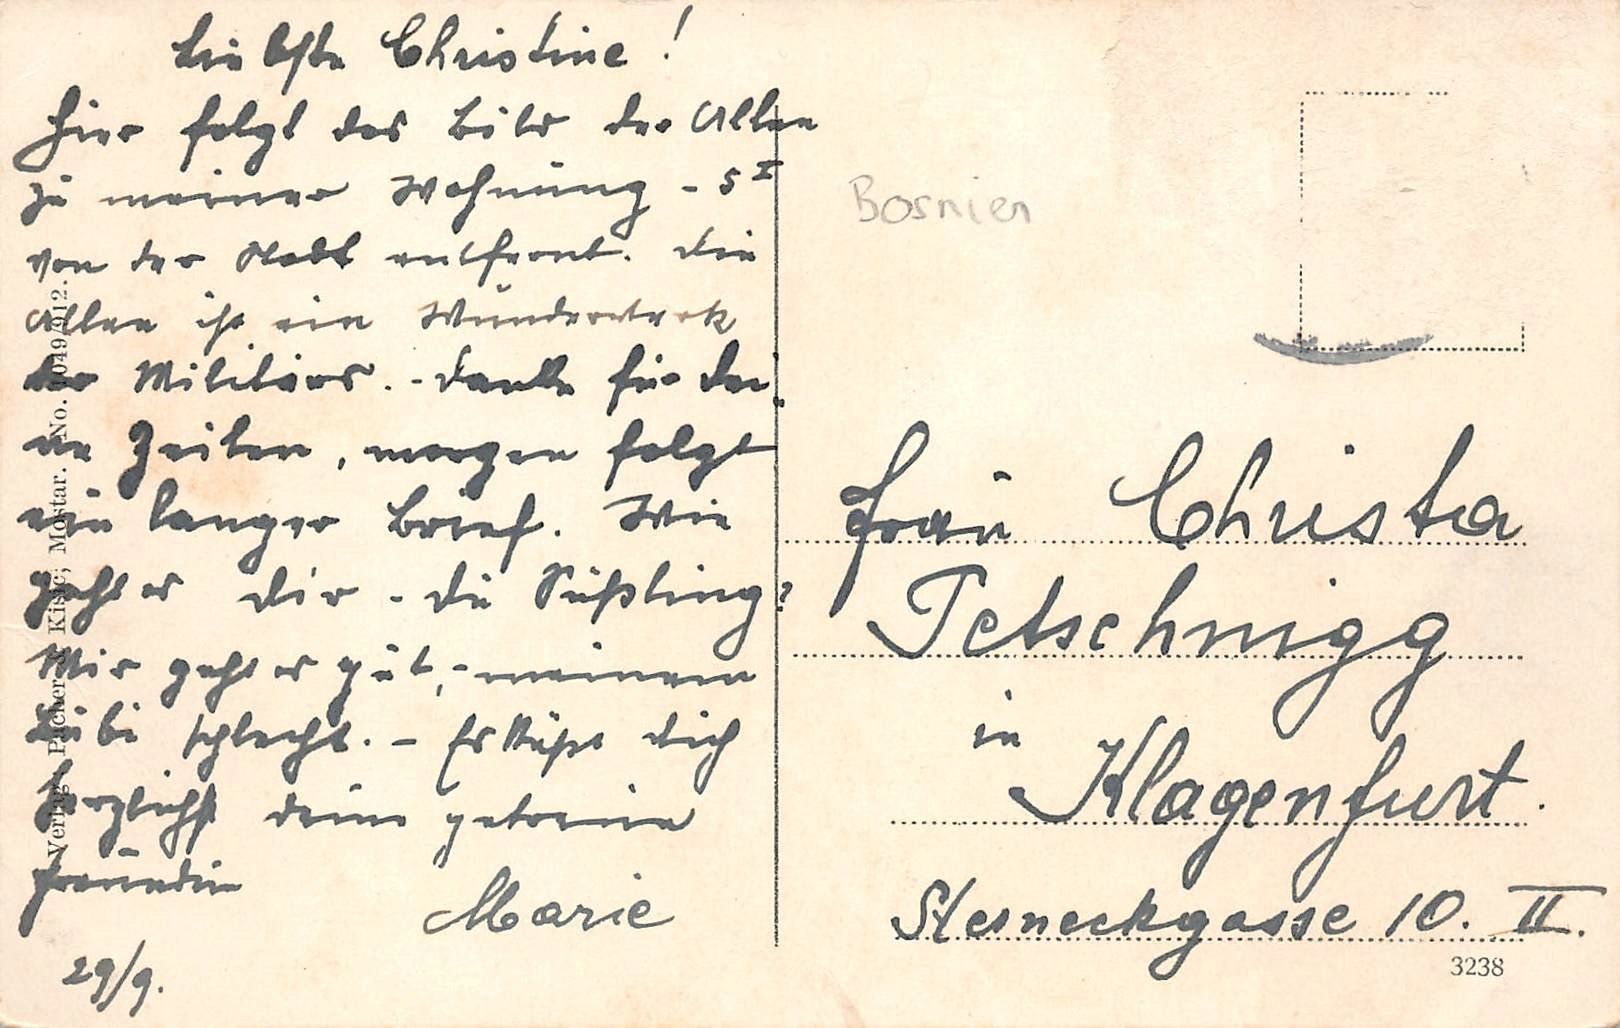 Liebste Christine!
Hier folgt das Bild der Allee
zu meiner Wohnung - 5
von der Stadt entfernt. Die
Allee ist ein Wunderwerk
der Militärs. - Danke für dei
ne Zeilen, morgen folgt
ein langer Brief. Wie
geht es dir - du Süßling?
Mir geht es gut, - meinem
Bubi schlecht. - Es küßt dich
herzlichst deine getreue
Freundin
Marie
29/9.
Verlag: Pacher & Kisić, Mostar. No. 049/912.
Bosnien
Frau Christa
Tetschnigg
in
Klagenfurt.
Sterneckgasse 10. II.
3238